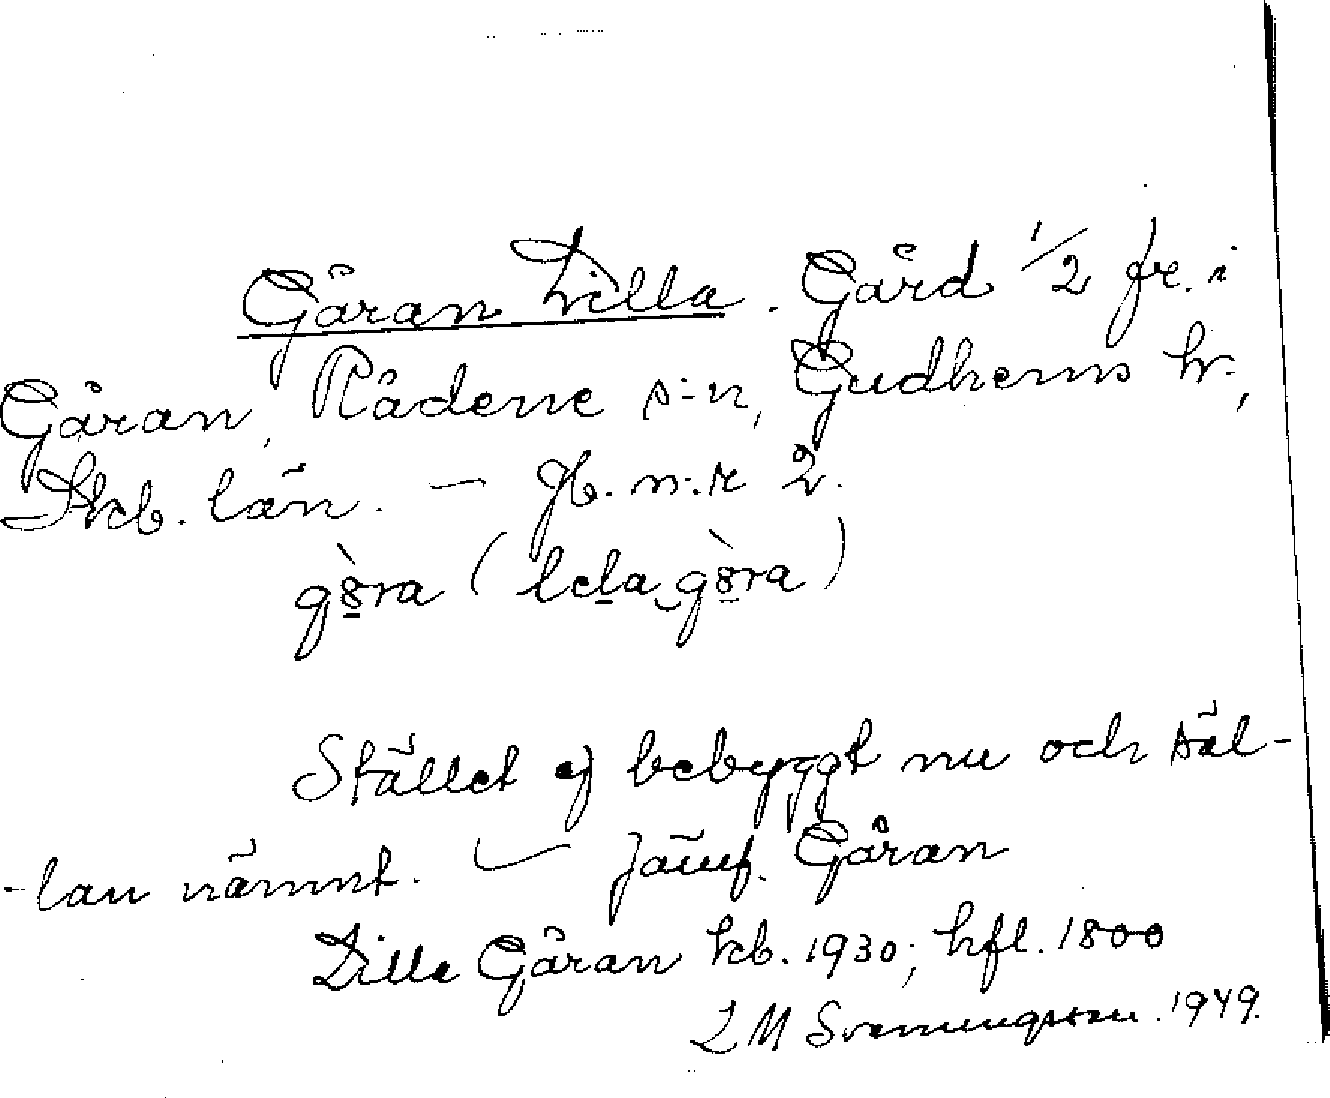 Gåran Lilla. Gård 1/2 fr. i
Gåran, Rådene s:n, Gudhems hr.,
Skb. län. — Jb. n:r 2.
gȣ̀ra (lela gȣ̀ra)
Stället ej bebyggt nu och säl-
-lan nämnt. — Jämf. Gåran
Lilla Gåran kb. 1930; hfl. 1800
L M Svenungsson. 1949.